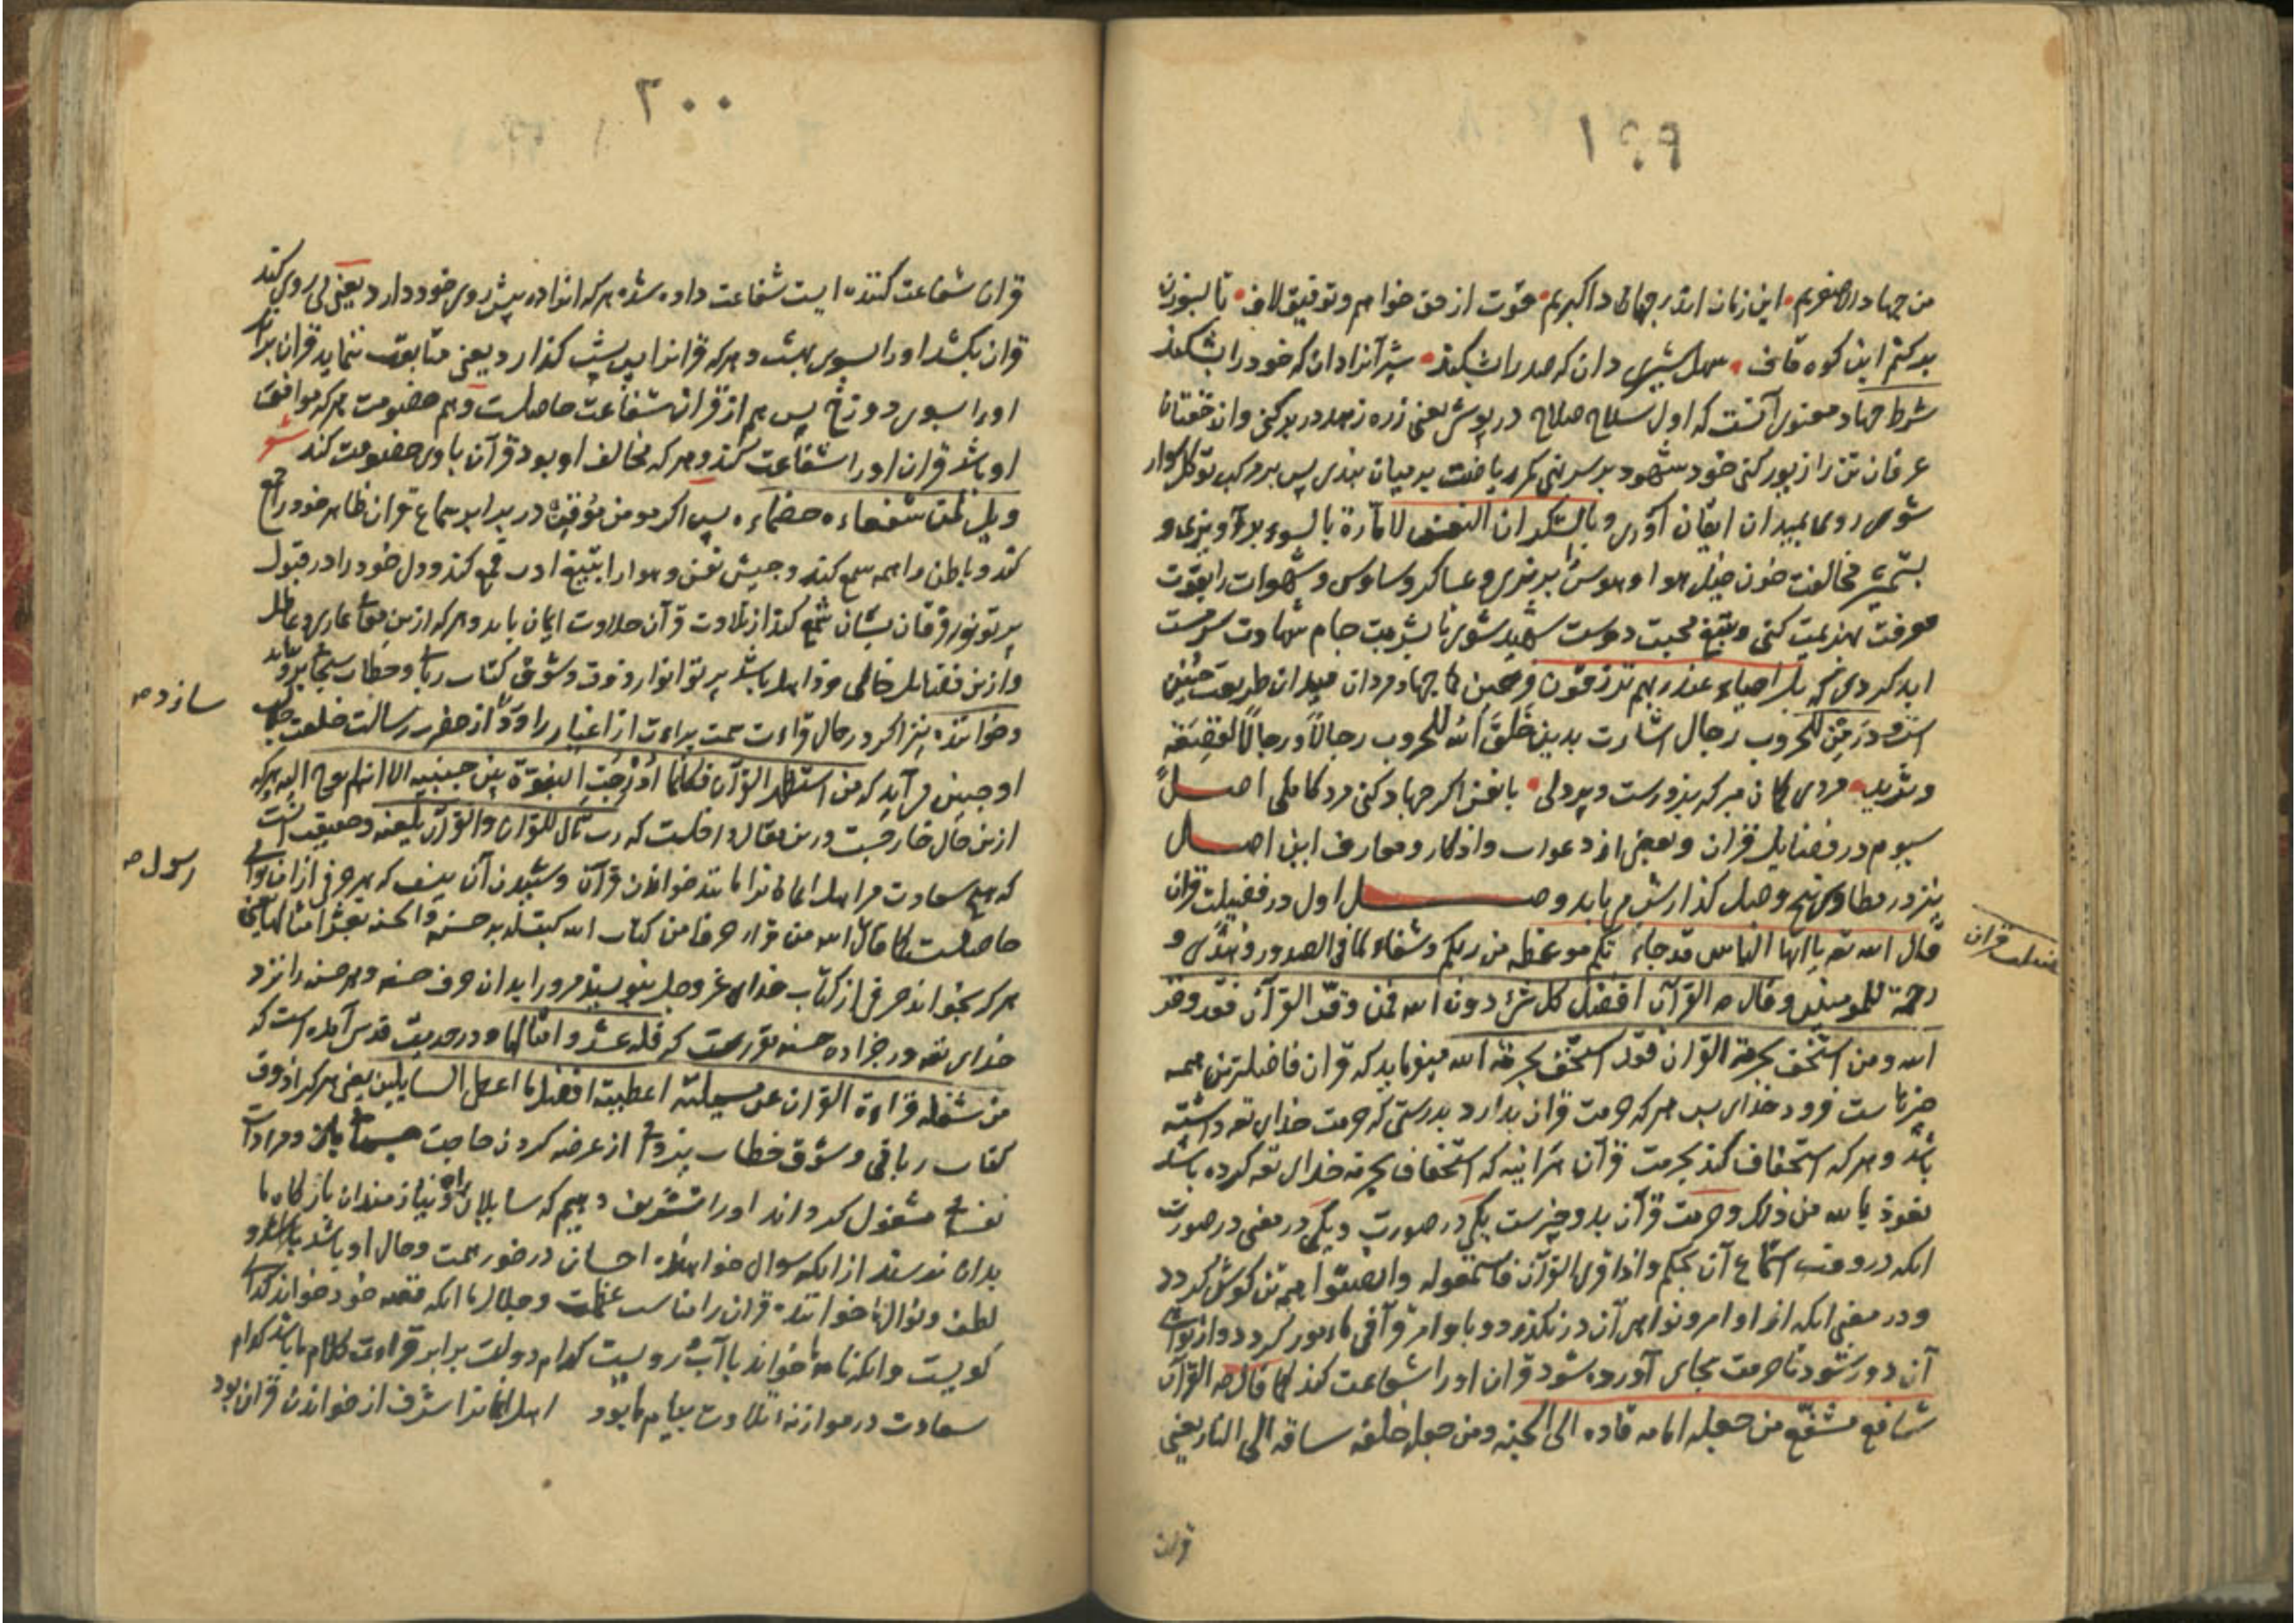 ۱۹۹
من جهاد الاصغریم این زمان اندر جهاد اکبریم قوت از حق خواهم و توفیق لاف تا بسوزن
بر کنم این کوه قاف سهل شیری دان که صدرا بشکند شیر آنرا دان که خود را بشکند
شرط جهاد معنوی آنست که اول سلاح صلاح در پوشی یعنی زره زهد در بر کنی و از خفتان
عرفان تن را زیور کنی خود شهود بر سر نهی کمر ریاضت بر میان بندی پس بر مرکب توکل سوار
شوی روی بمیدان ایقان آوری و با لشکر ان النفس لامارة بالسوء برآویزی و
بشمشیر مخالفت خون خیل هوا و هوس بریزی و عساکر وساوس و شهوات را بقوت
معرفت هزیمت کنی و بتیغ محبت دوست شهید شوی تا بشربت جام شهادت سرمست
ابد کردی که بل احیاء عند ربهم یرزقون فرحین کما جهاد مردان میدان طریقت چنین
است و در من للحروب رجال اشارت بدین خلق الله للحروب رجالا و رجالا لقصعة
و ثرید مردی کمان مبر که بزورست و پردلی با نفس اکر جهاد کنی مرد کاملی اصل
سیوم در فضایل قران و بعضی از دعوات و اذکار و معارف این اصل
نیز در مطاوی پنج وصل کذارش می یابد وصل اول در فضیلت قران
قال الله تع یا ایها الناس قد جاءتکم موعظه من ربکم و شفاء لما فی الصدور و هدی و
رحمة للمومنین و قال ص القرآن افضل کل شیء دون الله فمن وقر القرآن فقد وقر
الله و من استخف بحرمة القران فقد استخف بحرمة الله میفرماید که قران فاضلترین همه
چیزهاست فرود خدای پس هر که حرمت قران بدارد بدرستی که حرمت خدای تع داشته
باشد و هر که استخفاف کند بحرمت قرآن هرآینه که استخفاف بحرمة خدای تع کرده باشد
نعوذ بالله من ذلک و حرمت قرآن بدو چیزست یکی در صورت و یکی در معنی در صورت
انکه در وقت استماع آن بحکم و اذا قری القرآن فاستمعو له و انصتوا همه تن کوش کردد
و در معنی انکه از اوامر و نواهی آن در نکذرد و باوامر قرآنی مامور کردد و از نواهی
آن دور شود تا حرمت بجای آورده شود قران او را شفاعت کند کما قال ص القرآن
شافع مشفع من جعله امامه قاده الی الجنه و من جعله خلفه ساقه الی النار یعنی
فضیلت قران
قران
۲۰۰
قران شفاعت کننده ایست شفاعت داده شده هر که انرا در پیش روی خود دارد یعنی پی روی کند
قران بکشد او را بسوی بهشت و هر که قرانرا پس پشت کذارد یعنی متابعت ننماید قران براند
او را بسوی دوزخ پس هم از قران شفاعت حاصلست و هم خصومت هر که موافق
او باشد قران او را شفاعت کند و هر که مخالف او بود قرآن با وی خصومت کند شعر
ویل لمن شفعاءه خصماءه پس اکر مومن موقن در برابر سماع قران ظاهر خود را جمع
کند و باطن را همه سمع کند و جیش نفس و هوا را بتیغ ادب قمع کند و دل خود را در قبول
پرتو نور فرقان بسان شمع کند از تلاوت قرآن حلاوت ایمان یابد و هر که ازین معانی عاری و عاطل
و ازین فضایل خالی و ذاهل باشد پرتو انوار ذوق و شوق کتاب ربانی و خطاب سبحانی برو نتابد
و خواننده نیز اکر در حال قراءت سمت براءت از اغیار را ورد از حضرت رسالت خلعت
سازد ص
او چنین می آید که من استظهر القرآن فکانما ادرجت النبوة بین جنبیه الا انه لم یوحی الیه هر که
ازین حال خارجست درین مقال داخلست که رب تال للقران و القرآن یلعنه و حقیقت آنست
که هیچ سعادت مر اهل ایمانرا مانند خواندن قرآن و شنیدن آن نیست که بهر حرفی از آن ثوابی
رسول ص
حاصلست کما قال الله من قراء حرفا من کتاب الله کتب له به حسنه و الحسنه بعشر امثالها یعنی
هر که بخواند حرفی از کتاب خدای عز و جل بنویسند مر ورا بدان حرف حسنه و هر حسنه را نزد
خدای تع در جزا ده حسنه مقررست که فله عشر امثالها و در حدیث قدسی آمده است که
من شغله قراءة القران عن مسیلتی اعطیته افضل ما اعطی السایلین یعنی هر که را ذوق
کتاب ربانی و شوق خطاب یزدانی از عرضه کردن حاجت جسمانی و مرادات
نفسانی مشغول کرداند او را تشریف دهیم که سایلان راه و نیازمندان بارکاه ما
بدان نرسند از انکه سوال خواهنده احسان در خور همت و حال او باشد
لطف و نوال ما خواننده قران را مناسب عظمت و جلال ما انکه قصه خود خواند کدای
کویست و انکه نامه ما خواند با آب رویست کدام دولت برابر قراءت کلام ما باشد کدام
سعادت در موازنه تلاوت پیام ما بود اهل ایمانرا شرف از خواندن قران بود